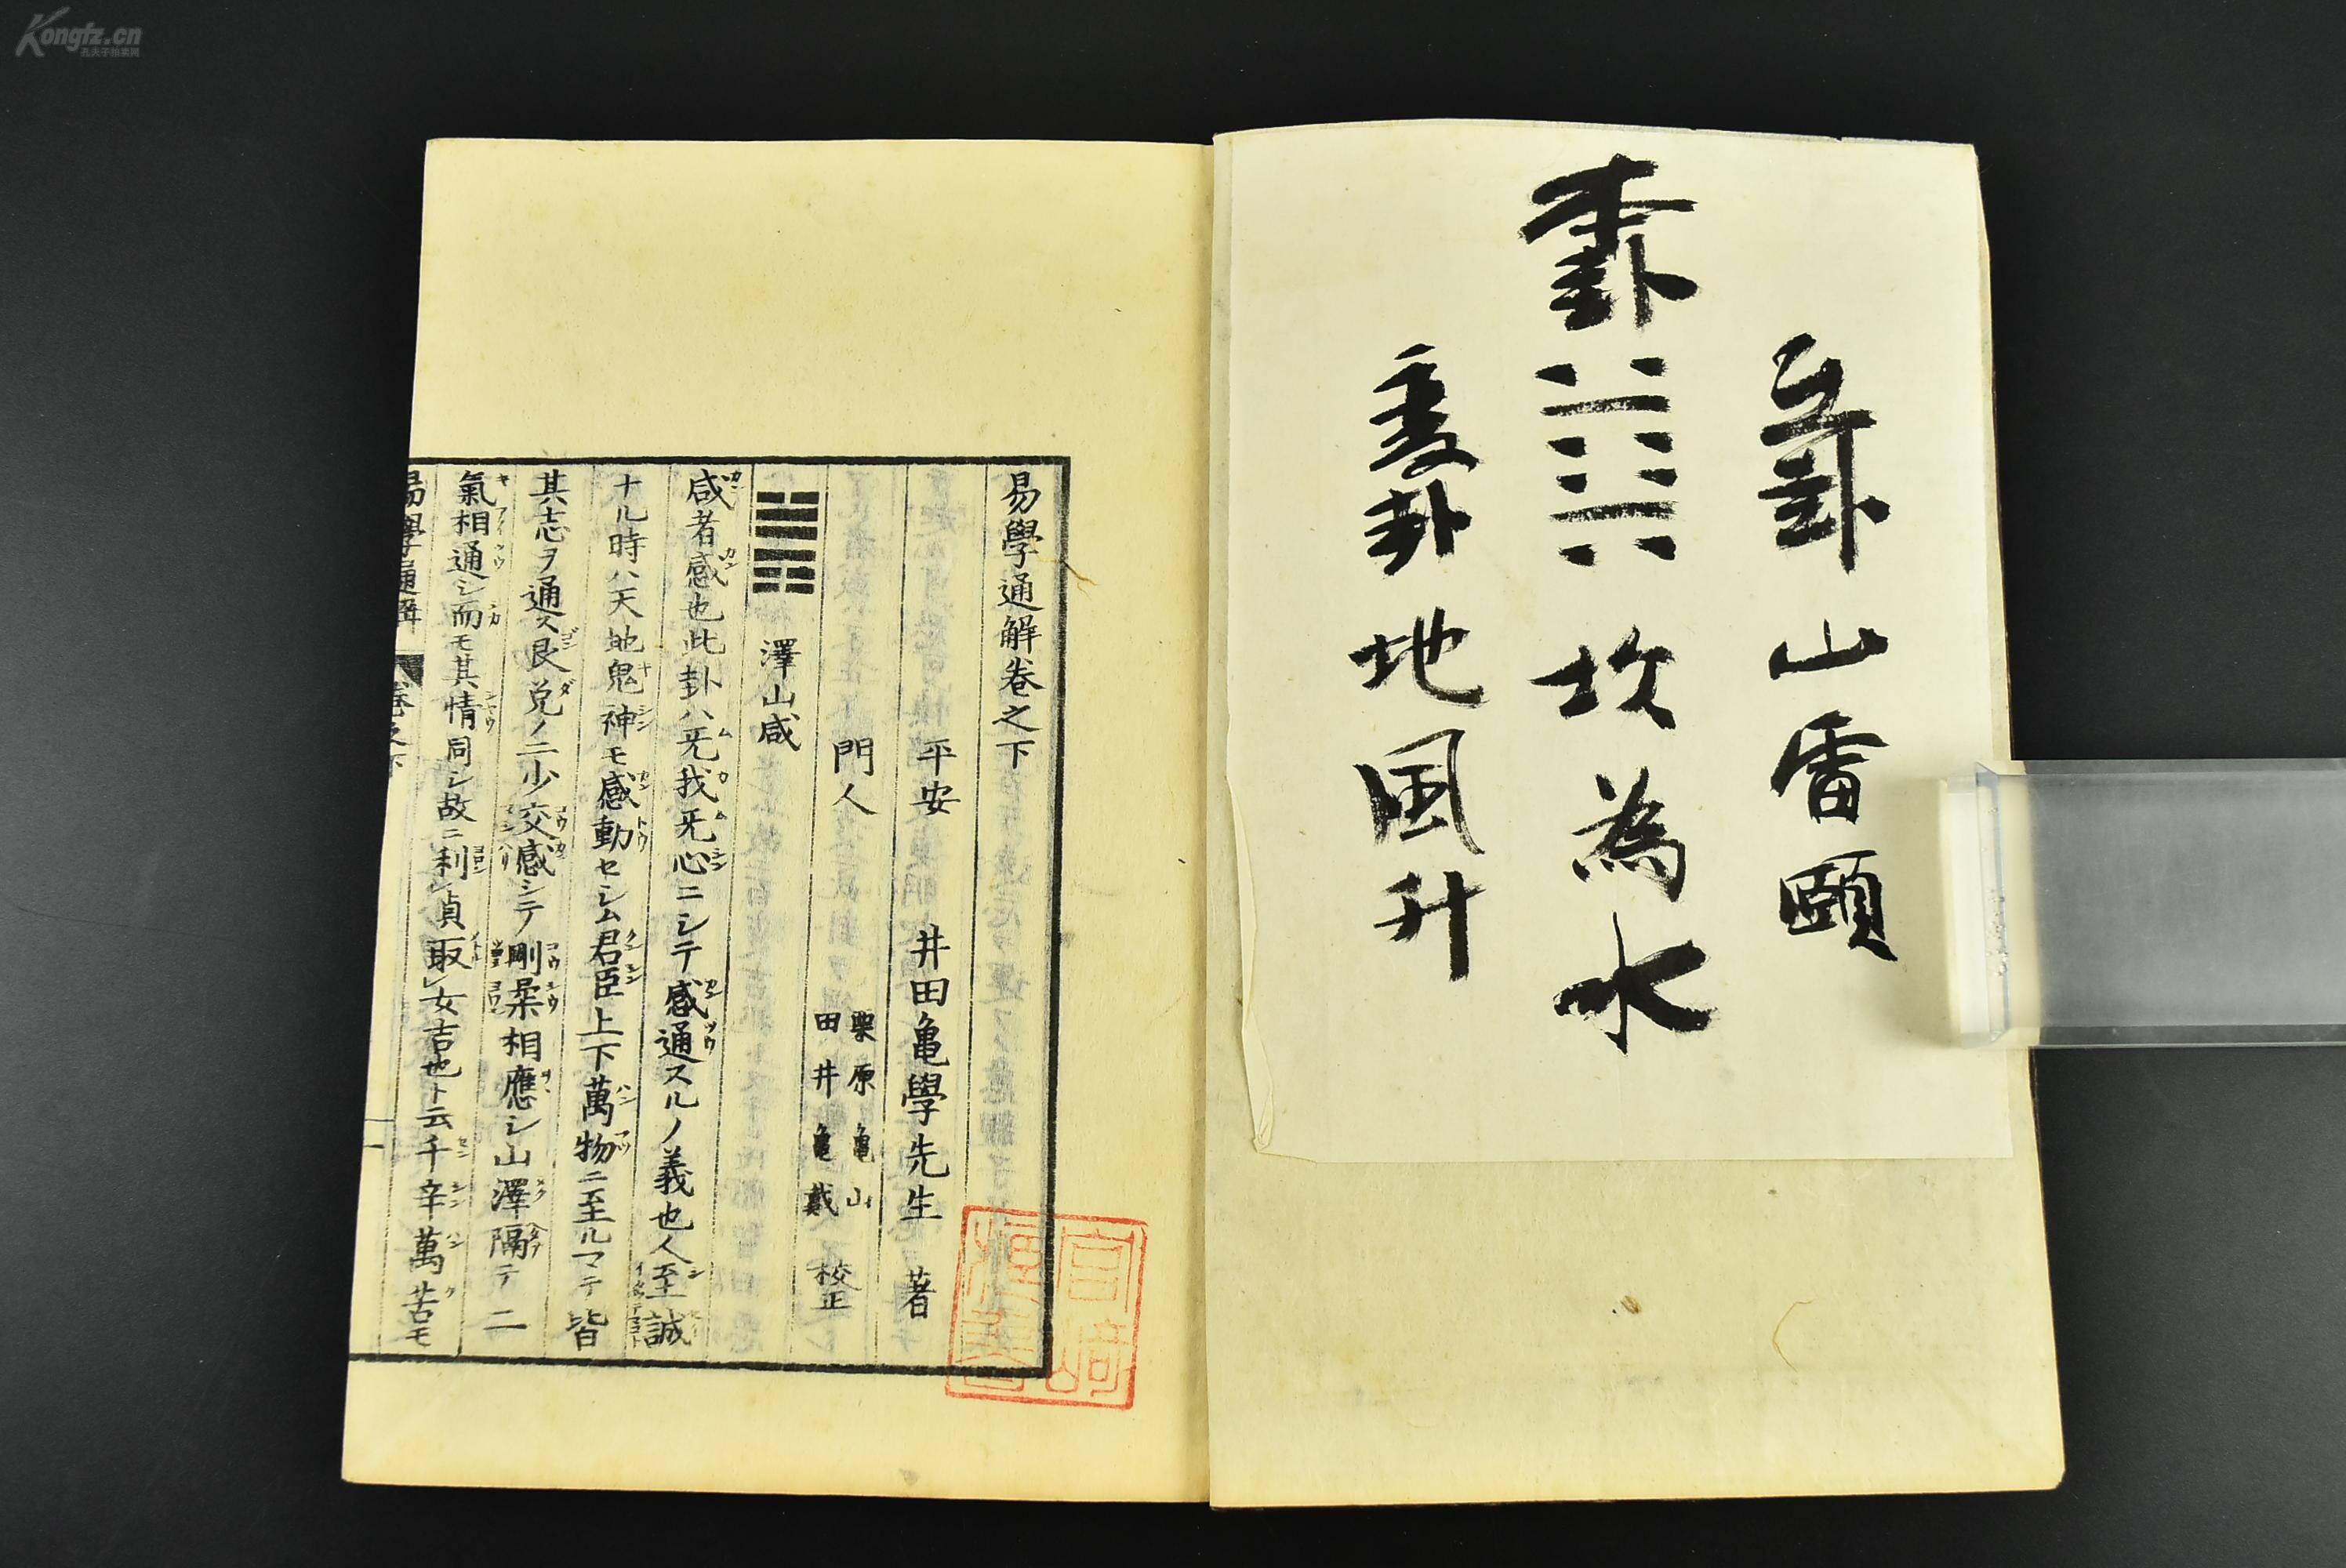 Kongfz.cn
孔夫子拍卖网
互卦 山雷頤
本卦 坎為水
変卦 地風升
易學通解卷之下
平安 井田亀學先生 著
門人 栗原亀山
田井亀戴 校正
澤山咸
咸者感也此卦ハ旡我旡心ニシテ感通スルノ義也人至誠
ナル時ハ天地鬼神モ感動セシム君臣上下萬物ニ至ルマテ皆
其志ヲ通ス艮兌ノ二少交感シテ剛柔相應シ山澤隔テ二
氣相通シ而モ其情同シ故ニ利貞取女吉也ト云千辛萬苦モ
易學通解 卷之下